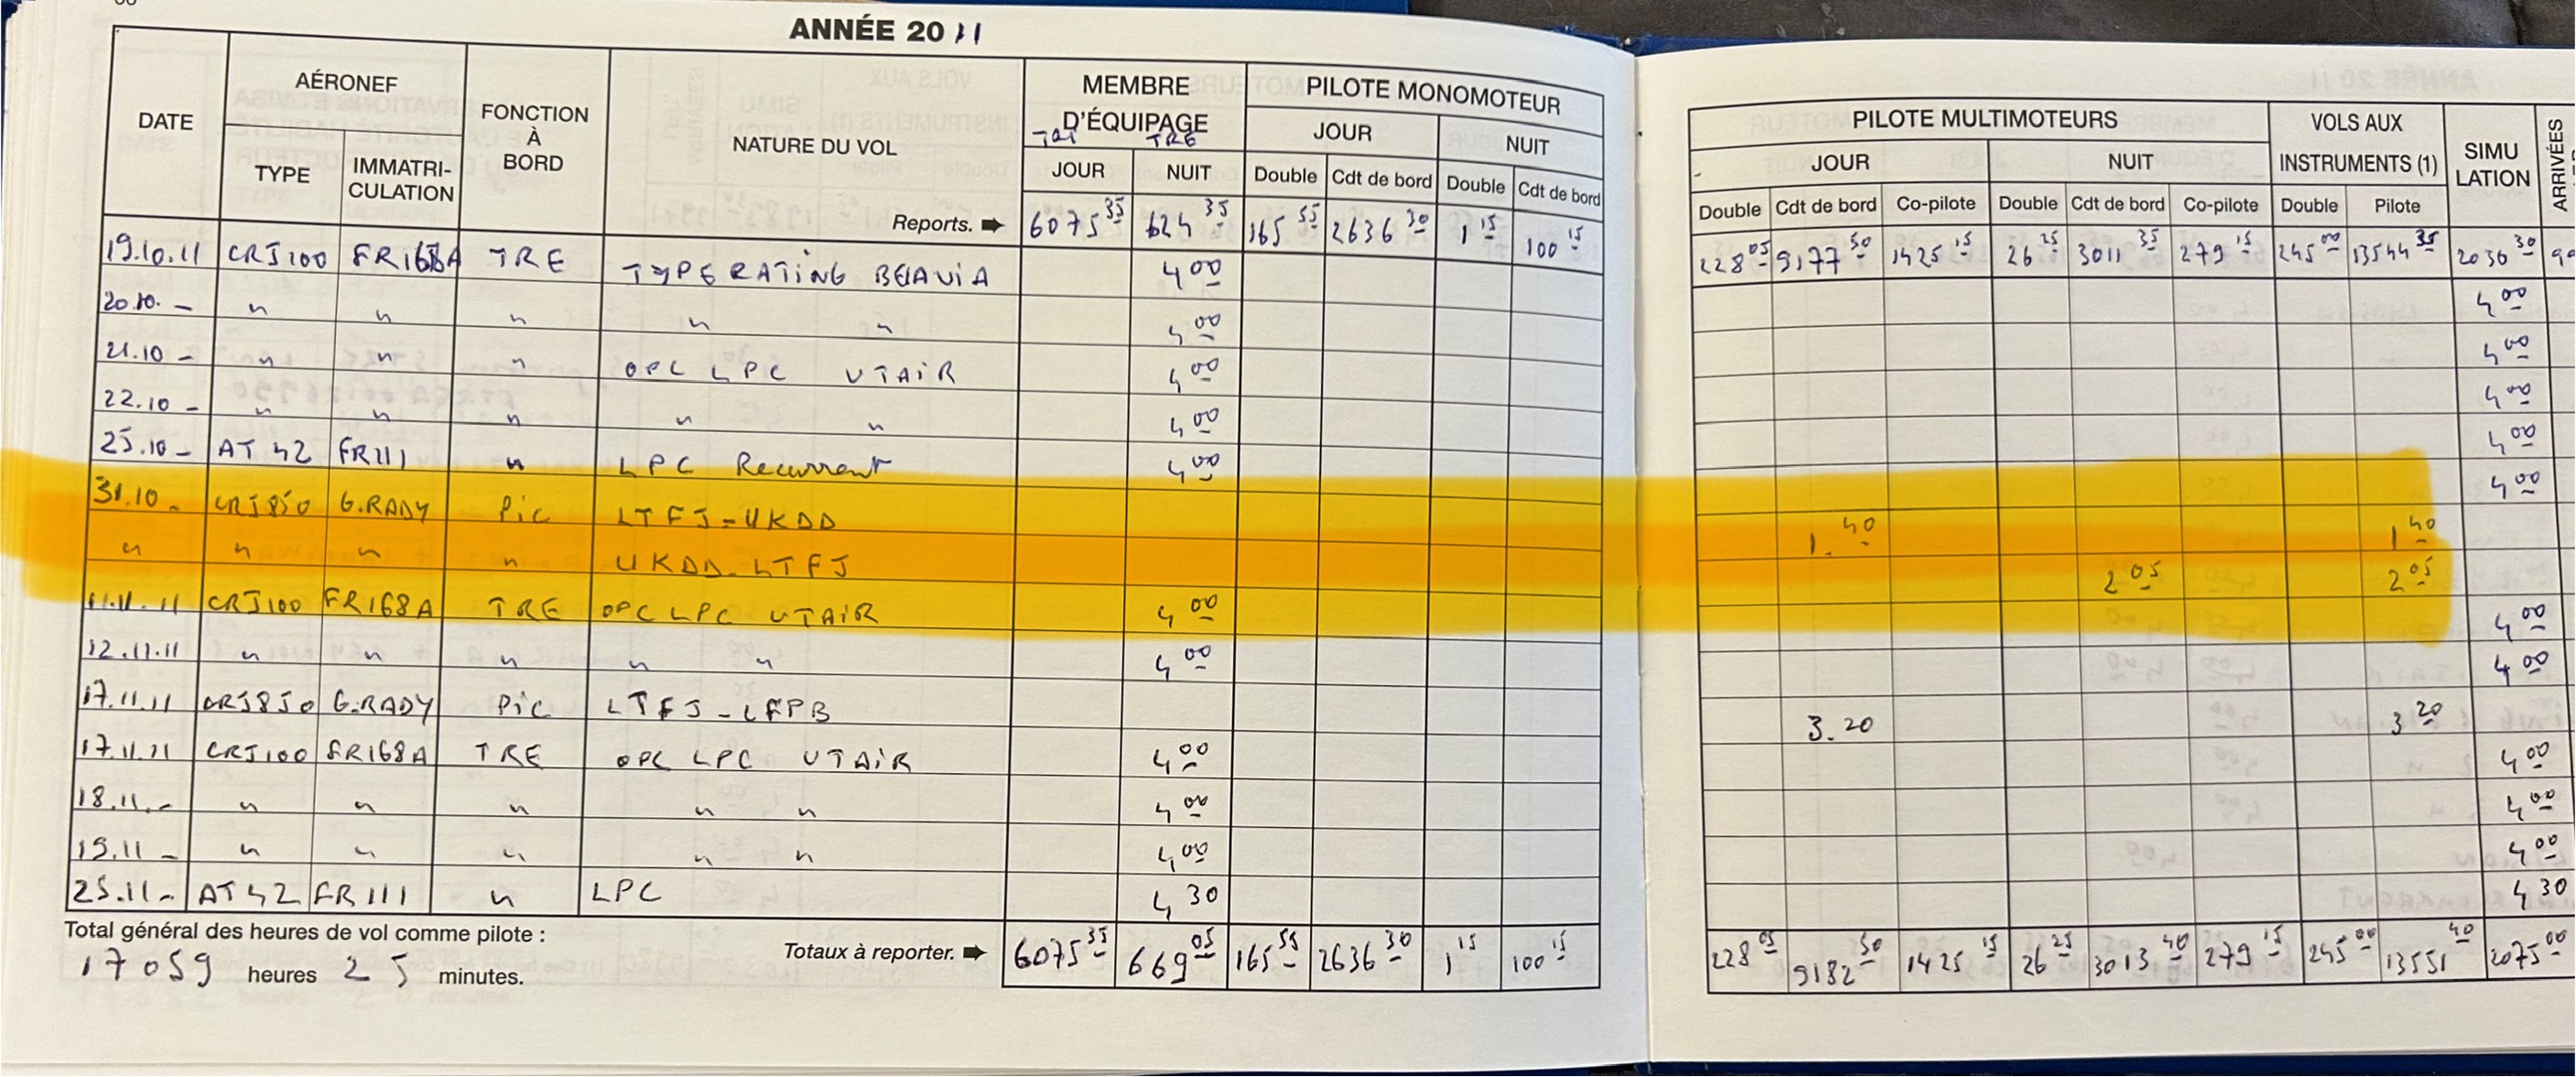 ANNÉE 2011
DATE AÉRONEF FONCTION À BORD NATURE DU VOL MEMBRE D'ÉQUIPAGE PILOTE MONOMOTEUR PILOTE MULTIMOTEURS VOLS AUX INSTRUMENTS (1) SIMU LATION ARRIVÉES
TYPE IMMATRI-CULATION TRI TRE JOUR NUIT JOUR NUIT
JOUR NUIT Double Cdt de bord Double Cdt de bord Double Cdt de bord Co-pilote Double Cdt de bord Co-pilote Double Pilote
Reports. ➡ 6075 35 624 35 165 55 2636 30 1 15 100 15 228 05 9177 50 1425 15 26 25 3011 35 279 15 245 00 13544 35 2036 30
19.10.11 CRJ100 FR168A TRE TYPE RATING BELAVIA 4 00 4 00
20.10. - " " " " " 4 00 4 00
21.10 - " " " OPC LPC UTAIR 4 00 4 00
22.10 - " " " " " 4 00 4 00
25.10 - AT42 FR111 " LPC Recurrent 4 00 4 00
31.10 - CRJ850 G.RADY Pic LTFJ-UKDD 1.40 1 40
" " " " UKDD-LTFJ 2 05 2 05
11.11.11 CRJ100 FR168A TRE OPC LPC UTAIR 4 00 4 00
12.11.11 " " " " " 4 00 4 00
17.11.11 CRJ850 G.RADY Pic LTFJ-LFPB 3.20 3 20
17.11.11 CRJ100 FR168A TRE OPC LPC UTAIR 4 00 4 00
18.11.- " " " " " 4 00 4 00
19.11 - " " " " " 4 00 4 00
25.11 - AT42 FR111 " LPC 4 30 4 30
Total général des heures de vol comme pilote :
17059 heures 25 minutes.
Totaux à reporter. ➡ 6075 35 669 05 165 55 2636 30 1 15 100 15 228 05 9182 50 1425 15 26 25 3013 40 279 15 245 00 13551 40 2075 00